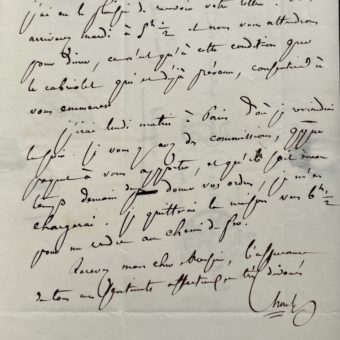 j'ai eu le plaisir de recevoir votre lettre. Vous
arriverez mardi à 5h 1/2 et nous vous attendrons
pour dîner, ce n'est qu'à cette condition que
le cabriolet qui est déjà prévenu, consentira à
vous emmener.
j'irai lundi matin à Paris d'où je reviendrai
le soir. Si vous y avez des commissions, quelque
paquet à vous apporter, et qu'il soit encore
temps demain de donner vos ordres, je m'en
chargerai. Je quitterai la maison vers 6h 1/2
pour me rendre au chemin de fer.
Recevez mon cher Monsieur, l'assurance
de tous mes sentiments affectueux et très dévoués